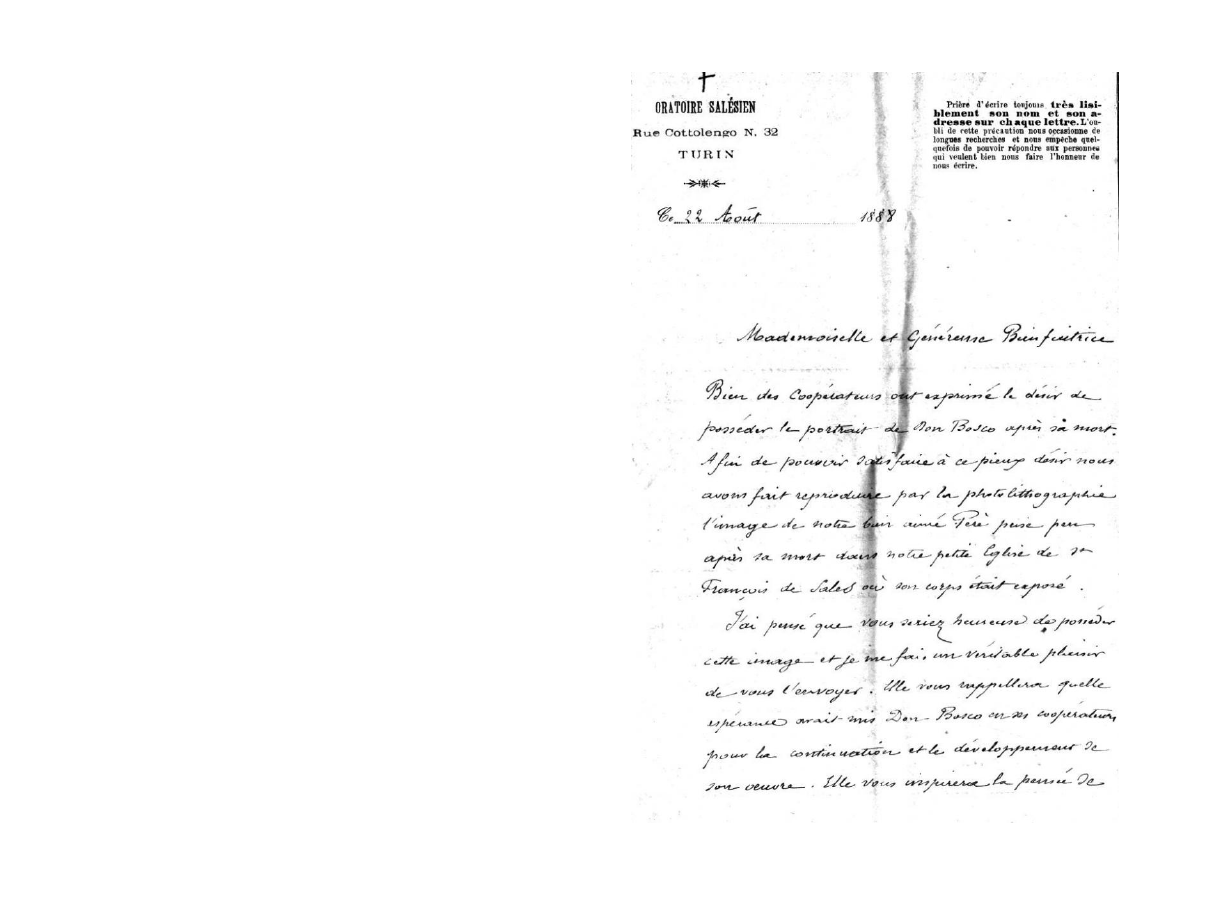 ORATOIRE SALÉSIEN
Rue Cottolengo N. 32
TURIN
Ce 22 Août 1888
Prière d'écrire toujours très lisi-
blement son nom et son a-
dresse sur chaque lettre. L'ou-
bli de cette précaution nous occasionne de
longues recherches et nous empêche quel-
quefois de pouvoir répondre aux personnes
qui veulent bien nous faire l'honneur de
nous écrire.
Mademoiselle et Généreuse Bienfaitrice
Bien des Coopérateurs ont exprimé le désir de
posséder le portrait de Don Bosco après sa mort.
Afin de pouvoir satisfaire à ce pieux désir nous
avons fait reproduire par la photolithographie
l'image de notre bien aimé Père prise peu
après sa mort dans notre petite Eglise de St
François de Sales où son corps était exposé.
J'ai pensé que vous seriez heureuse de posséder
cette image et je me fais un véritable plaisir
de vous l'envoyer. Elle vous rappellera quelle
espérance avait mis Don Bosco en ses coopérateurs
pour la continuation et le développement de
son oeuvre. Elle vous inspirera la pensée de